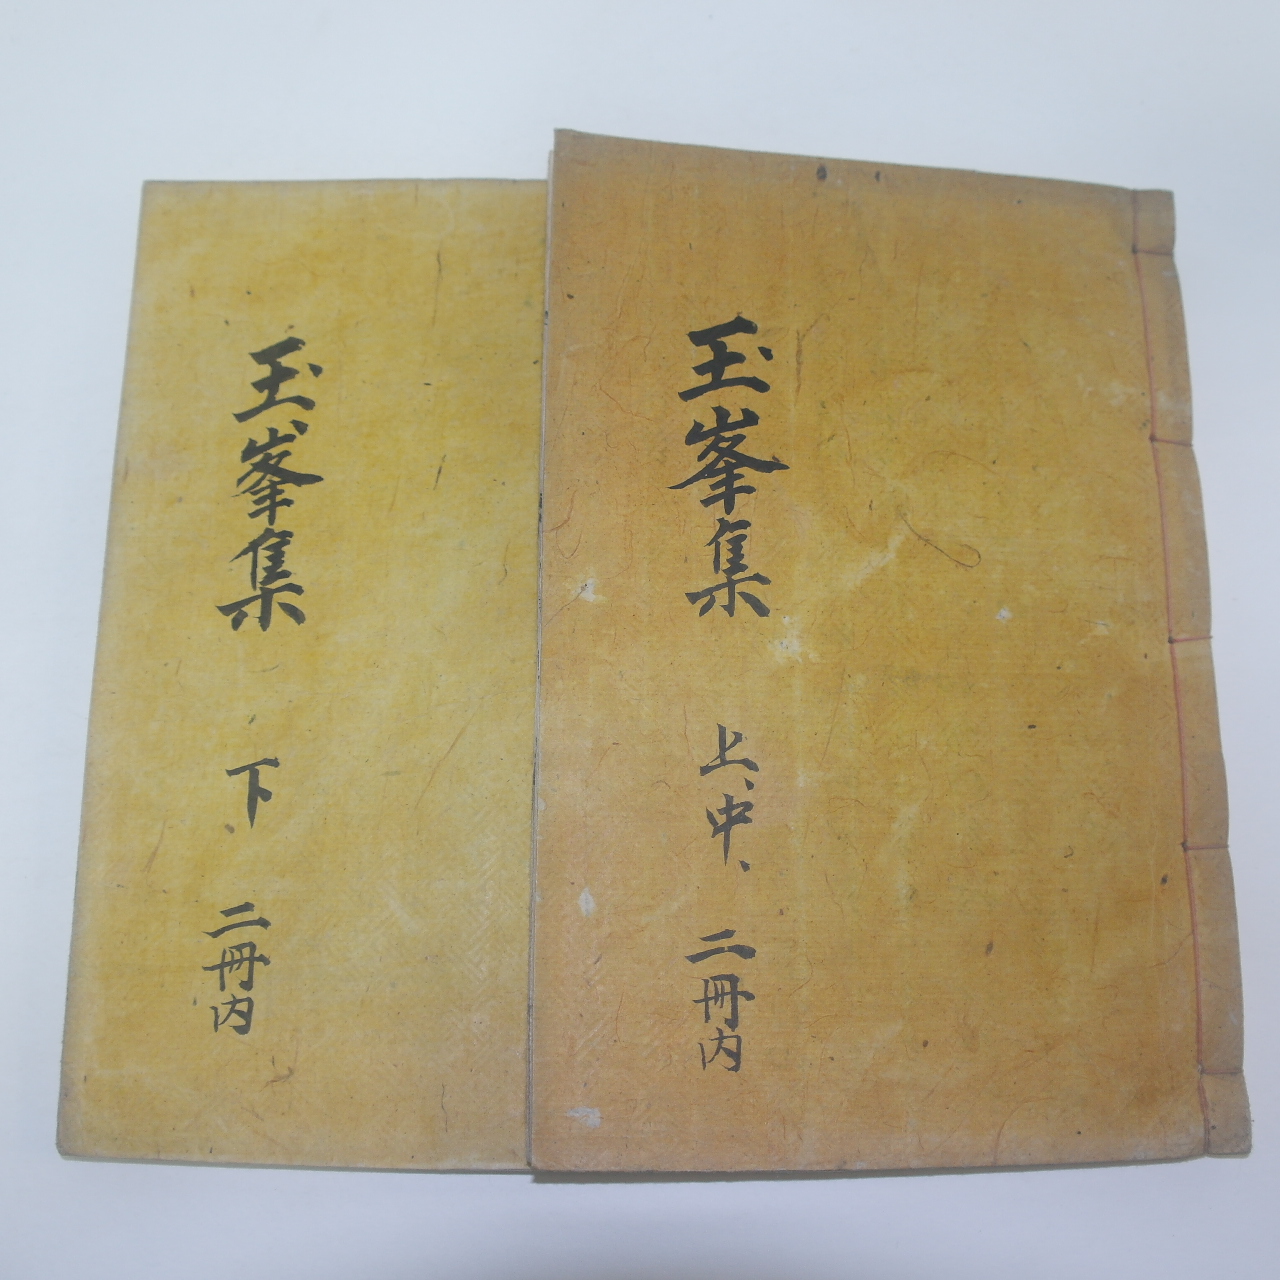 玉峯集 上、中、 二冊内
玉峯集 下、 二冊内